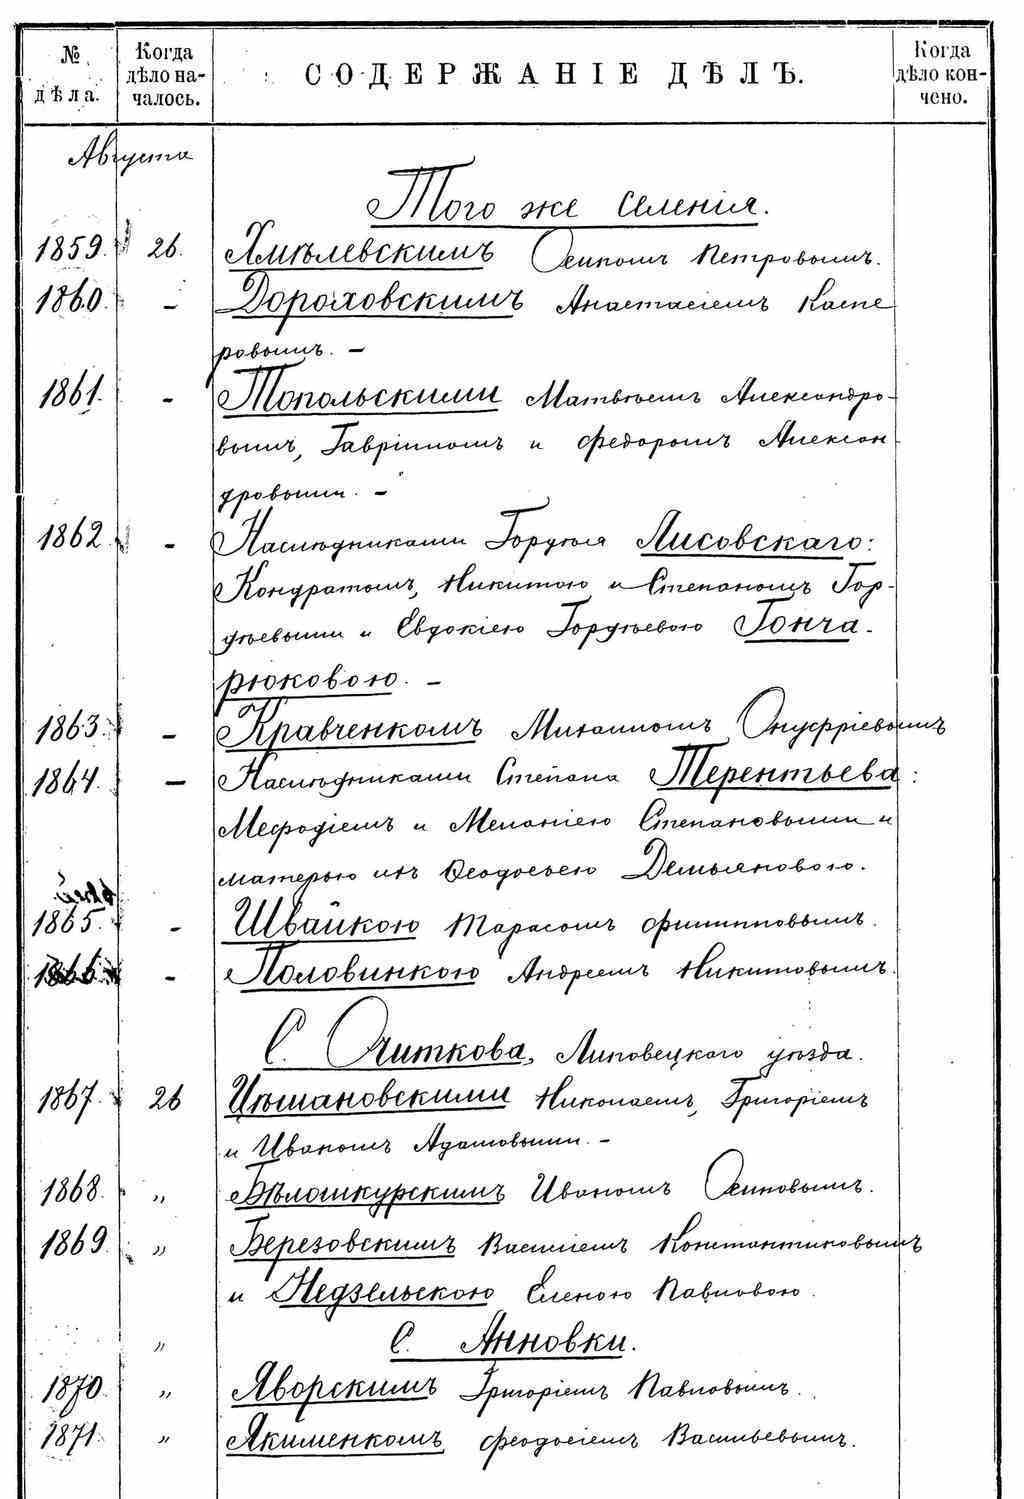 № дѣла. Когда дѣло началось. СОДЕРЖАНІЕ ДѢЛЪ. Когда дѣло кончено.
Августа
Того же селенія.
1859. 26. Хмѣлевскимъ Осипомъ Петровымъ.
1860. - Дороховскимъ Анастасіемъ Каспе
ровымъ. -
1861. - Топольскими Матвѣемъ Александро-
вымъ, Гавріиломъ и Федоромъ Алексан
дровыми. -
1862 - Наслѣдниками Гордѣя Лисовскаго:
Кондратомъ, Никитою и Степаномъ Гор-
дѣевыми и Евдокіею Гордѣевою Гонча-
рюковою. -
1863. - Кравченкомъ Михаиломъ Онуфріевымъ
1864. - Наслѣдниками Степана Терентьева:
Мефодіемъ и Меланіею Степановыми и
матерью ихъ Ѳеодосьею Демьяновою.
1865. - Швайкою Тарасомъ Филипповымъ.
1866. - Половинкою Андреемъ Никитовымъ.
С. Очиткова, Липовецкаго уѣзда.
1867. 26 Цѣшановскими Николаемъ, Григоріемъ
и Иваномъ Адамовыми. -
1868. " Бѣлошкурскимъ Иваномъ Осиповымъ.
1869. " Березовскимъ Василіемъ Константиновымъ
и Недзельскою Еленою Павловою.
" С. Анновки.
1870. " Яворскимъ Григоріемъ Павловымъ.
1871. " Якименкомъ Феодосіемъ Васильевымъ.